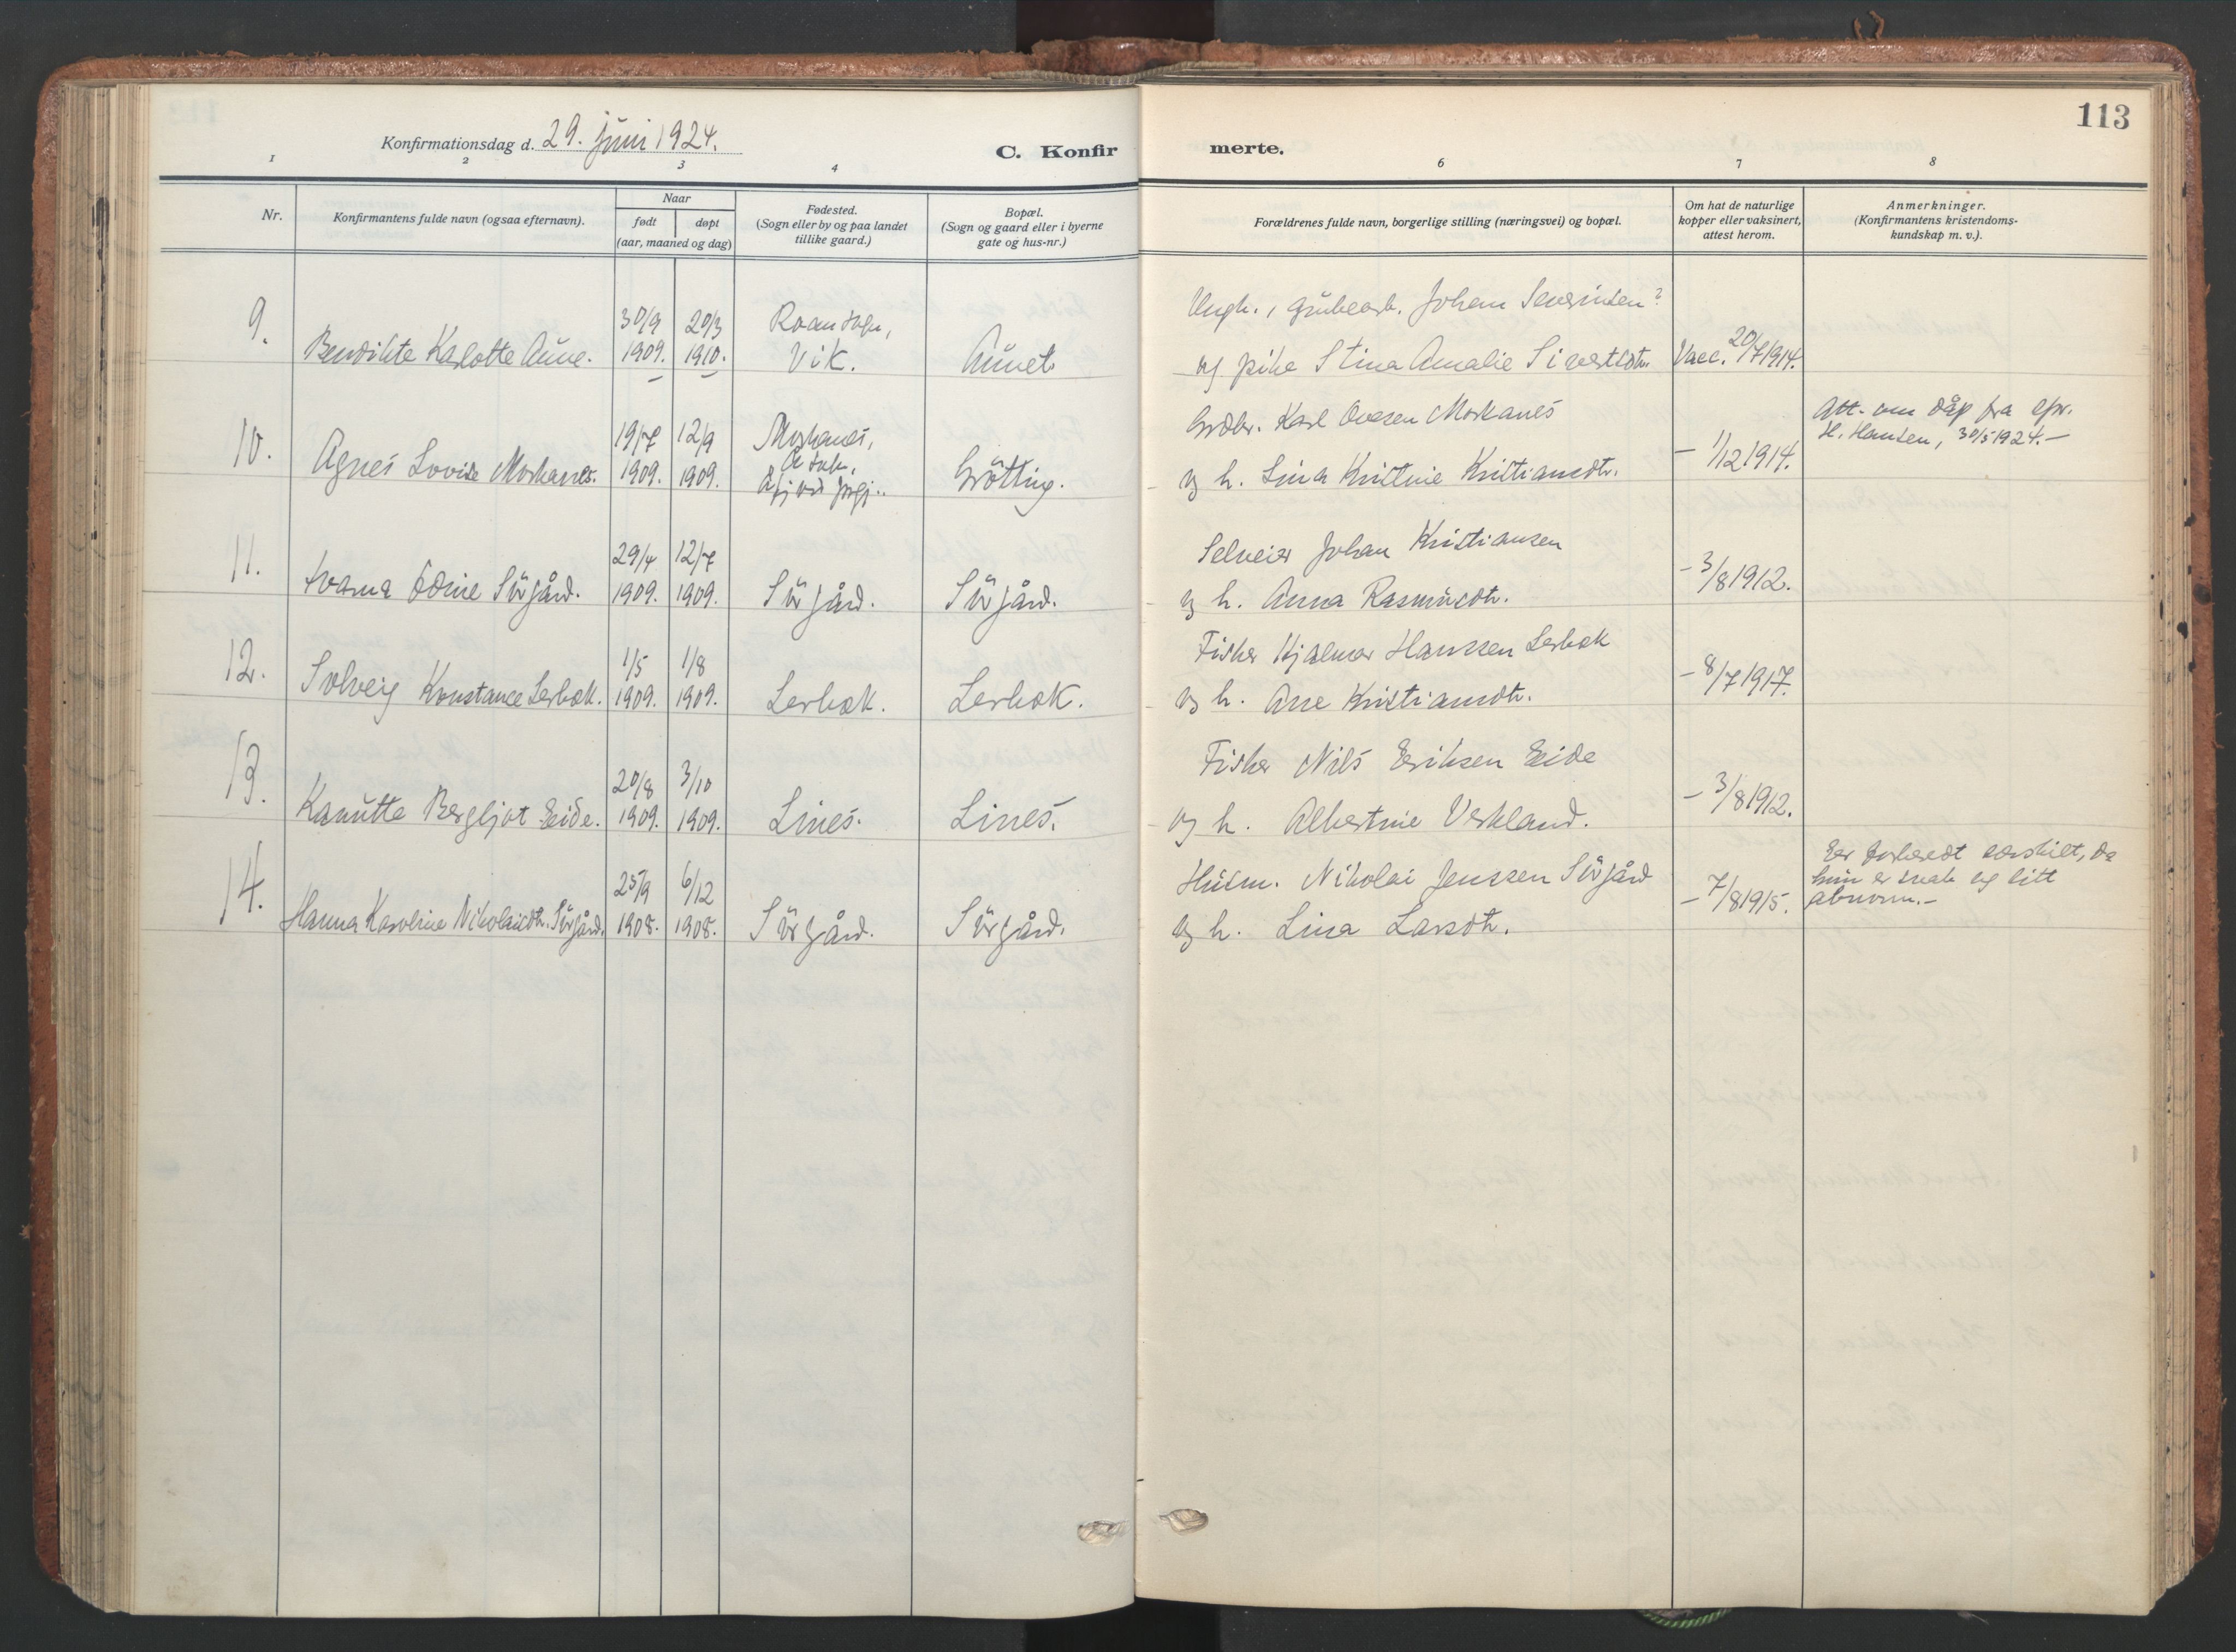 113
Konfirmationsdag d. 29. juni 1924.
C. Konfirmerte.
1 2 3 4 6 7 8
Nr.
Konfirmantens fulde navn (ogsaa efternavn).
Naar
født døpt
(aar, maaned og dag)
Fødested.
(Sogn eller by og paa landet
tillike gaard.)
Bopæl.
(Sogn og gaard eller i byerne
gate og hus-nr.)
Forældrenes fulde navn, borgerlige stilling (næringsvei) og bopæl.
Om hat de naturlige
kopper eller vaksinert,
attest herom.
Anmerkninger.
(Konfirmantens kristendoms-
kundskap m. v.).
9. 30/9 20/3 Roan sogn, Ungk., grubearb. Johan Severinsen?
Bendikte Karlotte Aune. 1909. 1910. Vik. Aunet og pike Stina Amalie Sivertsdtr. Vacc. 20/7 1914.
10. 19/7 12/9 Moskanes, Grdbr. Karl Ovesen Moskanes Att. om dåp fra spr.
Agnes Lovise Moskanes. 1909. 1909. Grötting. og h. Lina Kristine Kristiansdtr. – 1/12 1914. H. Hansen, 30/5 1924.–
11. 29/4 12/7 Selveier Johan Kristiansen
Ivarna Odine Sörgård. 1909. 1909. Sörgård. Sörgård. og h. Anna Rasmusdtr. – 3/8 1912.
12. 1/5 1/8 Fisker Hjalmar Hanssen Lerbak
Solveig Konstance Lerbak. 1909. 1909. Lerbak. Lerbak. og h. Ane Kristiansdtr. – 8/7 1917.
13. 20/8 3/10 Fisker Nils Eriksen Eide
Kanutte Bergljot Eide. 1909. 1909. Lines. Lines. og h. Albertine Verkland. – 3/8 1912.
14. 25/9 6/12 Husm. Nikolai Jenssen Sörgård Er forberedt særskilt, da
Hanna Karoline Nikolaisdtr. Sörgård. 1908. 1908. Sörgård. Sörgård. og h. Lina Larsdtr. – 7/8 1915. hun er svak og litt
abnorm.–